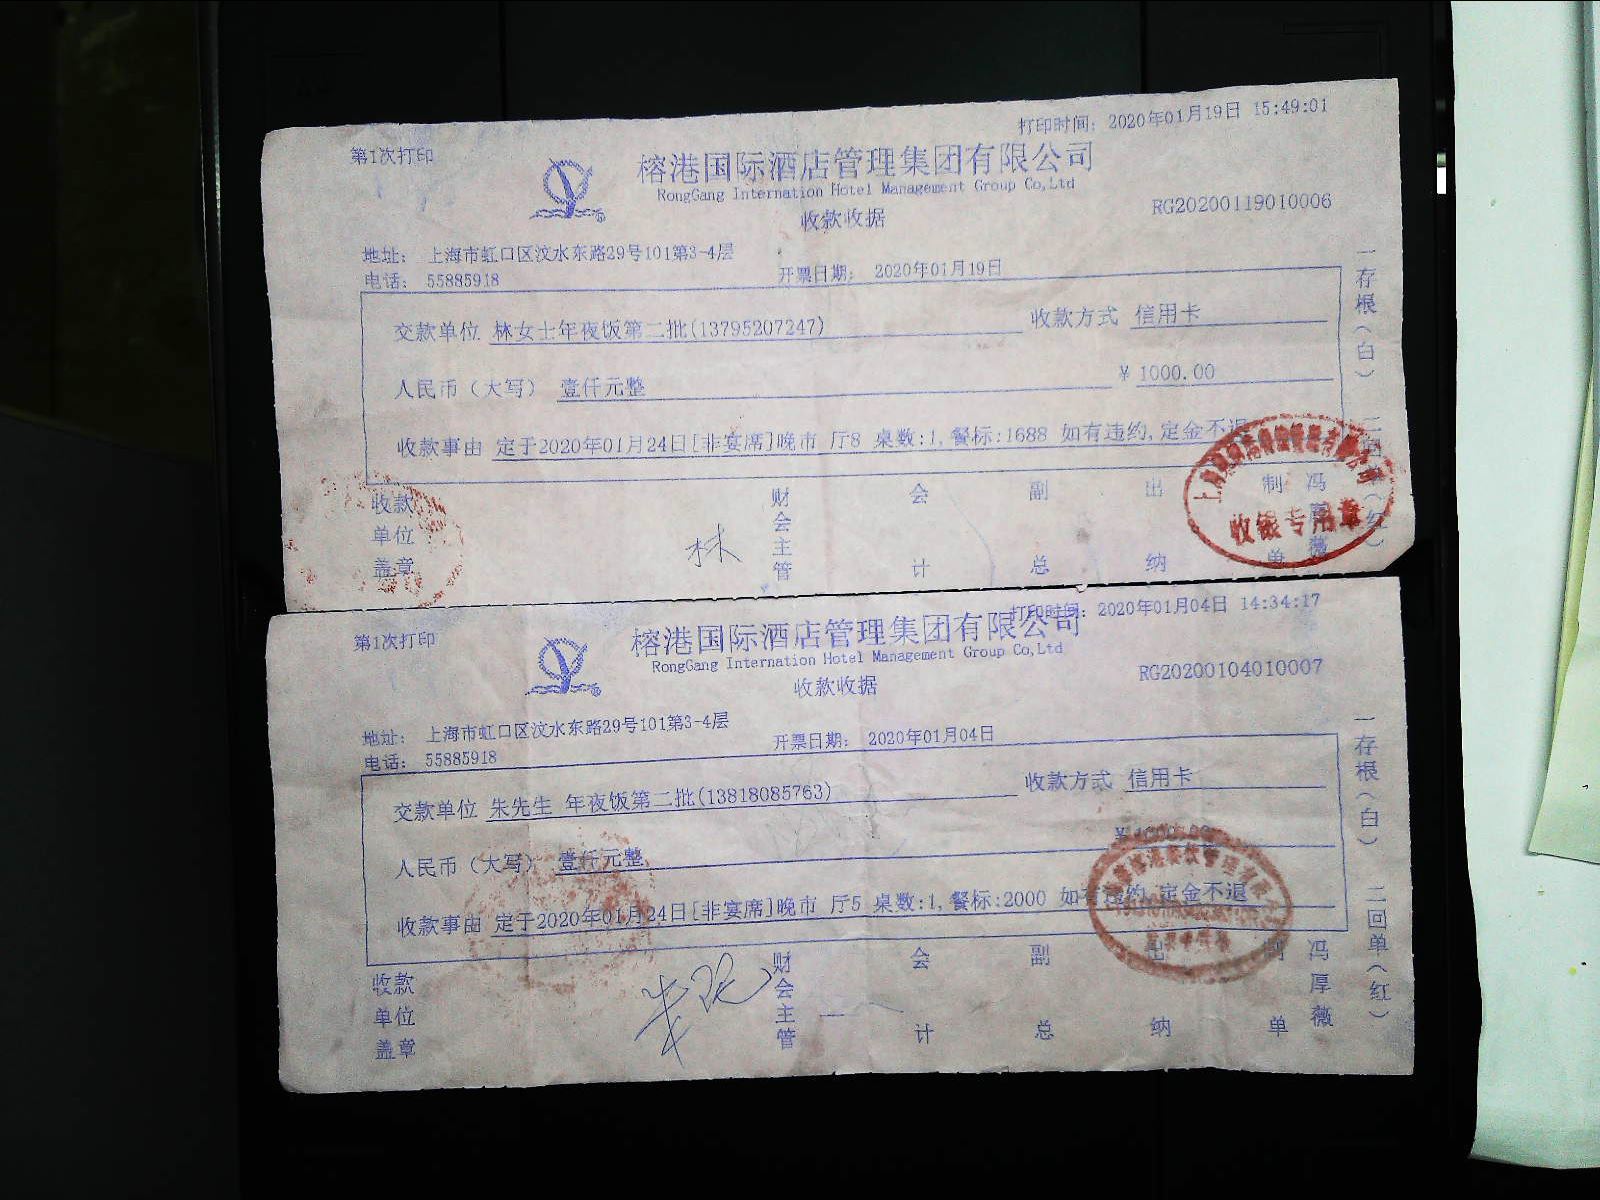 第1次打印
打印时间：2020年01月19日 15:49:01
榕港国际酒店管理集团有限公司
RongGang Internation Hotel Management Group Co,Ltd
收款收据
RG20200119010006
地址： 上海市虹口区汶水东路29号101第3-4层
电话： 55885918
开票日期： 2020年01月19日
交款单位 林女士年夜饭第二批(13795207247) 收款方式 信用卡
人民币（大写） 壹仟元整 ¥ 1000.00
收款事由 定于2020年01月24日[非宴席]晚市 厅8 桌数:1,餐标:1688 如有违约,定金不退
一存根（白）
收款单位盖章
林
财会主管
会计
副总
出纳
制单
冯 薇
收银专用章
第1次打印
打印时间：2020年01月04日 14:34:17
榕港国际酒店管理集团有限公司
RongGang Internation Hotel Management Group Co,Ltd
收款收据
RG20200104010007
地址： 上海市虹口区汶水东路29号101第3-4层
电话： 55885918
开票日期： 2020年01月04日
交款单位 朱先生 年夜饭第二批(13818085763) 收款方式 信用卡
人民币（大写） 壹仟元整
收款事由 定于2020年01月24日[非宴席]晚市 厅5 桌数:1,餐标:2000 如有违约,定金不退
一存根（白） 二回单（红）
收款单位盖章
财会主管
会计
副总
出纳
制单
冯厚薇